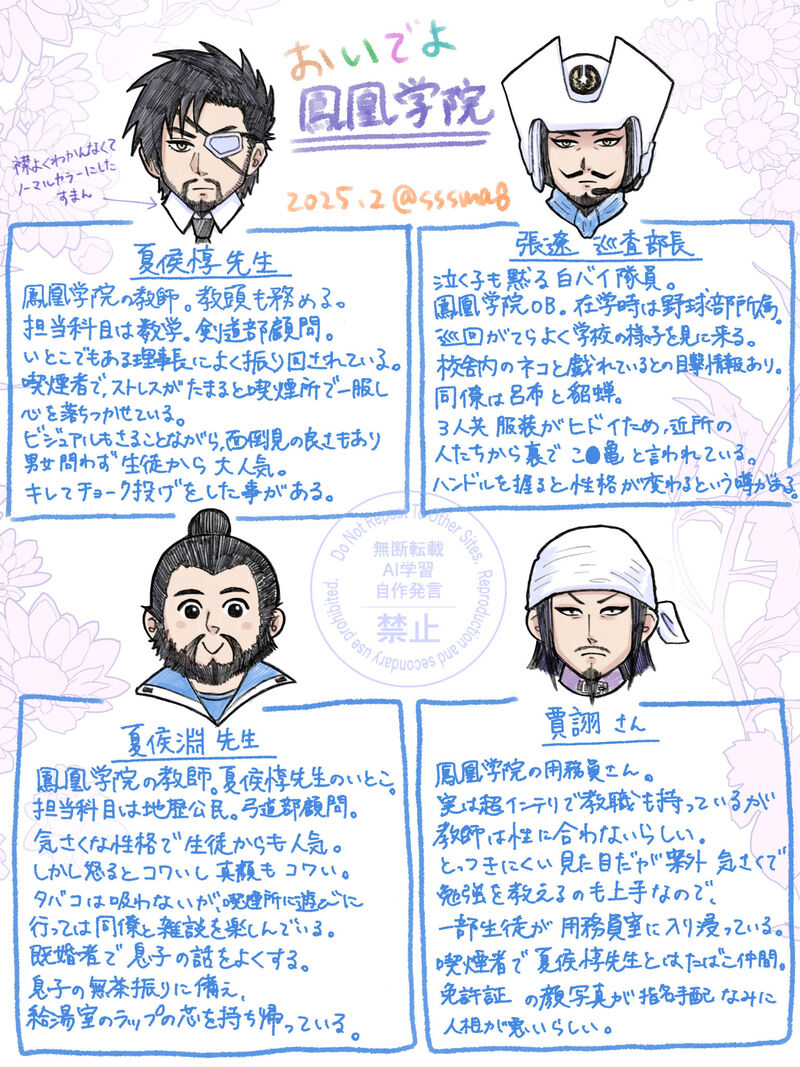 おいでよ
鳳凰学院
2025.2 @sssma8
襟よくわかんなくて
ノーマルカラーにした
すまん
夏侯惇先生
鳳凰学院の教師。教頭も務める。
担当科目は数学。剣道部顧問。
いとこでもある理事長によく振り回されている。
喫煙者で、ストレスがたまると喫煙所で一服し
心を落ちつかせている。
ビジュアルもさることながら、面倒見の良さもあり
男女問わず生徒から大人気。
キレてチョーク投げをした事がある。
張遼 巡査部長
泣く子も黙る白バイ隊員。
鳳凰学院OB。在学時は野球部所属。
巡回がてらよく学校の様子を見に来る。
校舎内のネコと戯れているとの目撃情報あり。
同僚は呂布と貂蝉。
3人共服装がヒドイため、近所の
人たちから裏でこ●亀と言われている。
ハンドルを握ると性格が変わるという噂がある。
Do Not Repost To Other Sites. Reproduction and secondary use prohibited.
無断転載
AI学習
自作発言
禁止
夏侯淵 先生
鳳凰学院の教師。夏侯惇先生のいとこ。
担当科目は地歴公民。弓道部顧問。
気さくな性格で生徒からも人気。
しかし怒るとコワいし真顔もコワい。
タバコは吸わないが、喫煙所に遊びに
行っては同僚と雑談を楽しんでいる。
既婚者で息子の話をよくする。
息子の無茶振りに備え、
給湯室のラップの芯を持ち帰っている。
賈詡さん
鳳凰学院の用務員さん。
実は超インテリで教職も持っているが
教師は性に合わないらしい。
とっつきにくい見た目だが案外気さくで
勉強を教えるのも上手なので、
一部生徒が用務員室に入り浸っている。
喫煙者で夏侯惇先生とはたばこ仲間。
免許証の顔写真が指名手配なみに
人相が悪いらしい。